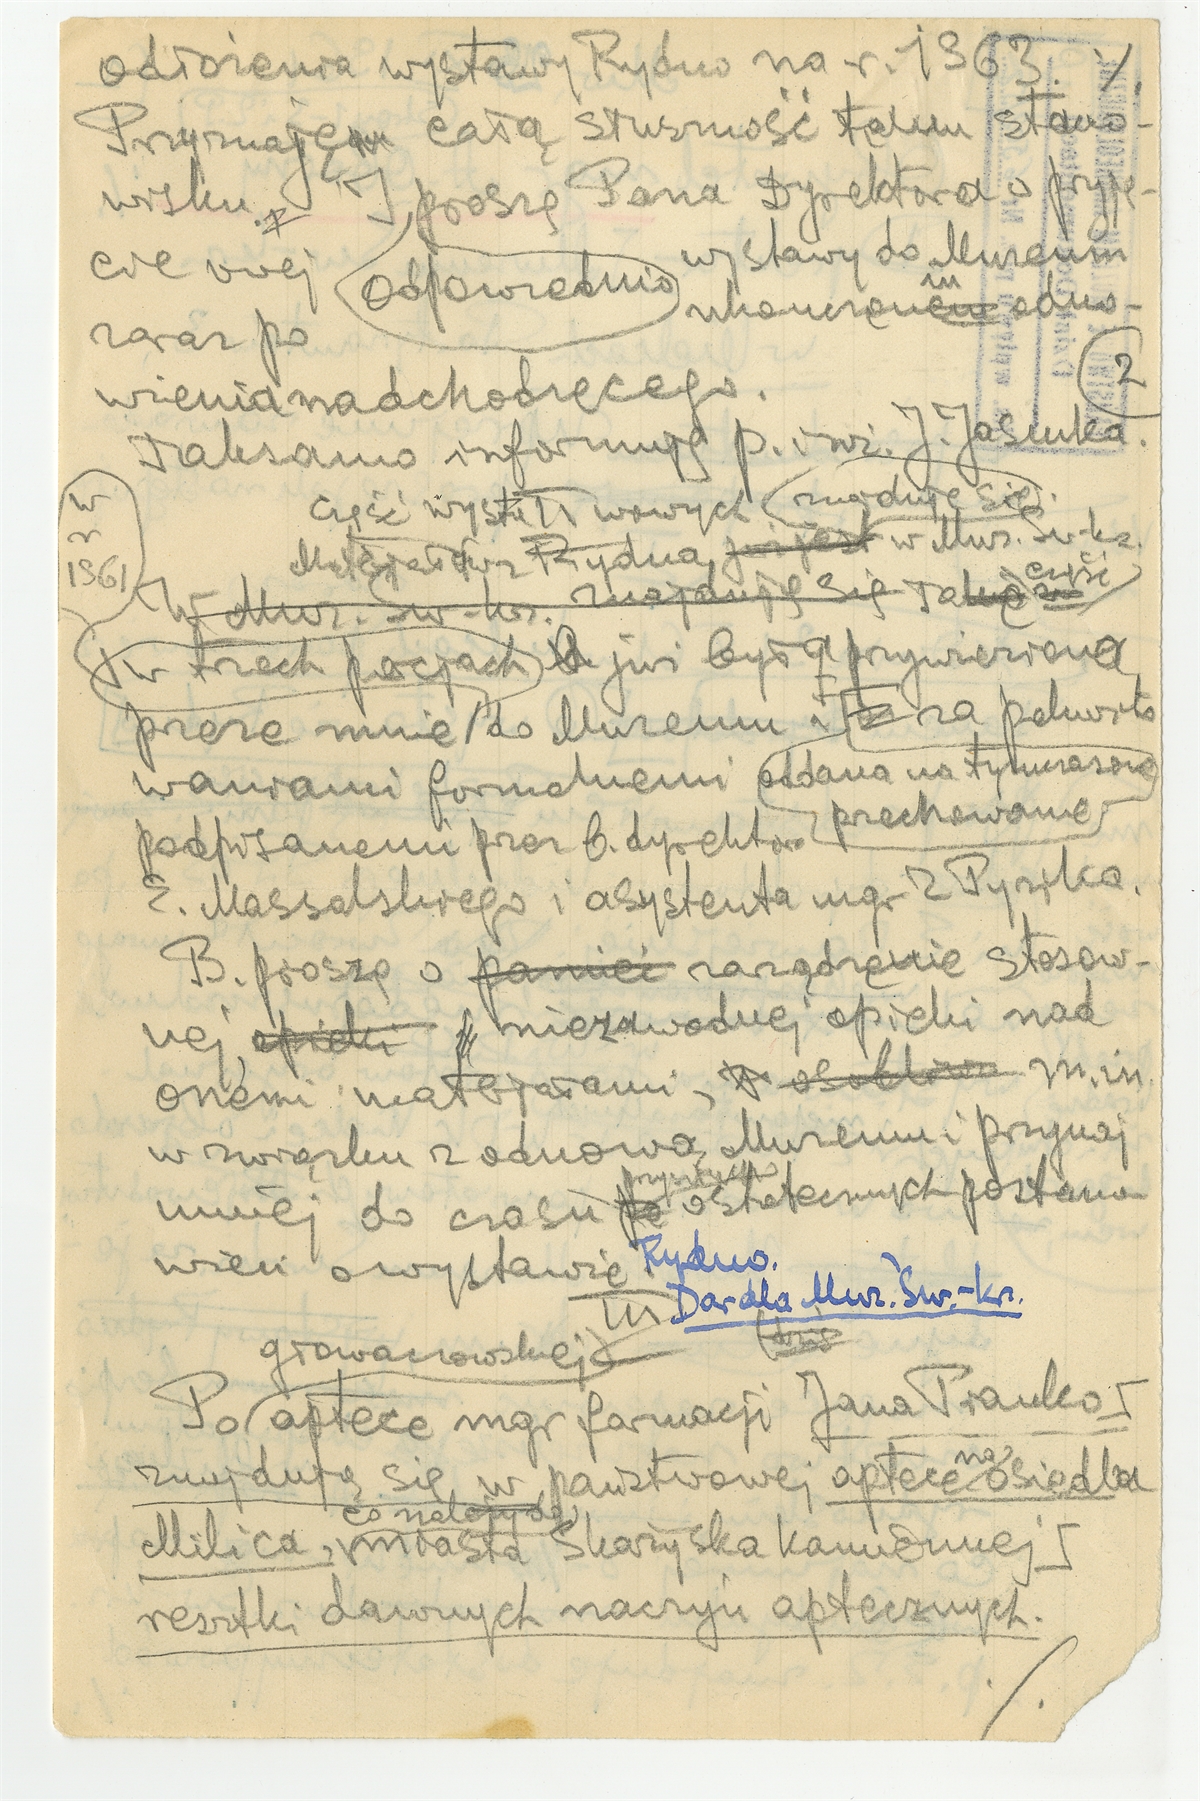 odłożenia wystawy Rydno na r. 1963. /.
Przyznaję całą słuszność temu stano-
wisku. I proszę Pana Dyrektora o przyję-
cie owej odpowiednio wystawy do Muzeum
zaraz po ukończeniu odno-
wienia nadchodzącego.
2
Taksamo informuję p. inż. J. Jasiuka.
Część wystawowych znajduje się
w r. 1961
Materjałów z Rydna, już jest w Muz. Św-krz.
W Muz. Św-krz. znajduję się także część
w trzech porcjach już była przywieziona
przeze mnie do Muzeum i za pokwito
waniami formalnemi oddana na tymczasowe
przechowanie
podpisanemi przez b. dyrektora
E. Massalskiego i asystenta mgr Z Pyzika.
B. proszę o pamięć zarządzenie stosow-
nej opieki niezawodnej opieki nad
onemi materjałami, osobliwie m.in.
w związku z odnową Muzeum i przynaj
mniej do czasu po przyszłych ostatecznych postano
wień o wystawie Rydno.
III Dar dla Muz. Św.-krz.
gławaczowskiej
Po aptece mgr farmacji Jana Pianko
znajdują się w państwowej aptece na osiedla
Milica, miasta Skarżyska Kamiennej
resztki dawnych naczyń aptecznych.
./.